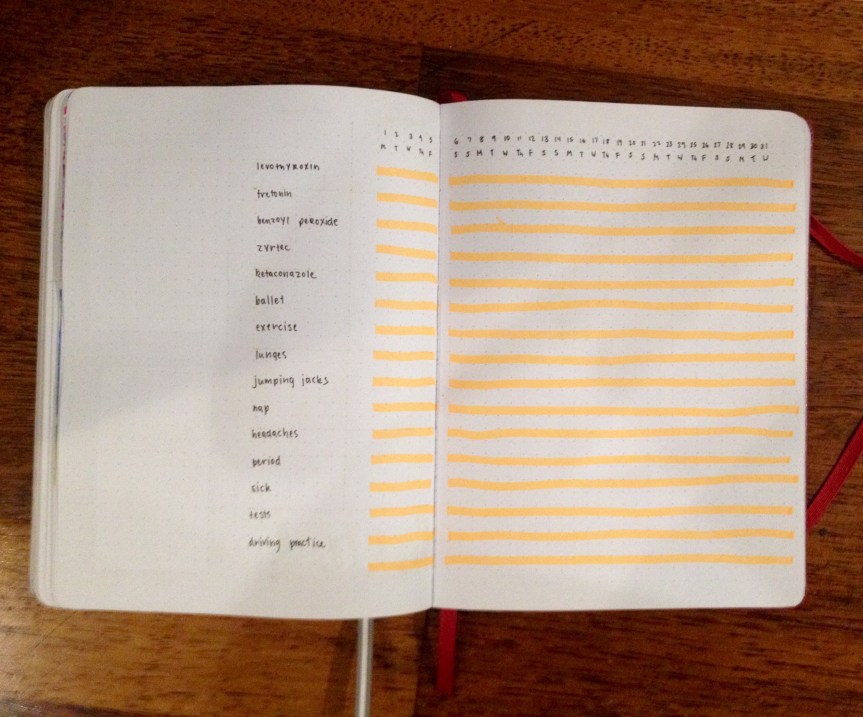 1 2 3 4 5 6 7 8 9 10 11 12 13 14 15 16 17 18 19 20 21 22 23 24 25 26 27 28 29 30 31
M T W Th F S S M T W Th F S S M T W Th F S S M T W Th F S S M T W
levothyroxin
tretonin
benzoyl peroxide
zyrtec
ketaconazole
ballet
exercise
lunges
jumping jacks
nap
headaches
period
sick
tests
driving practice